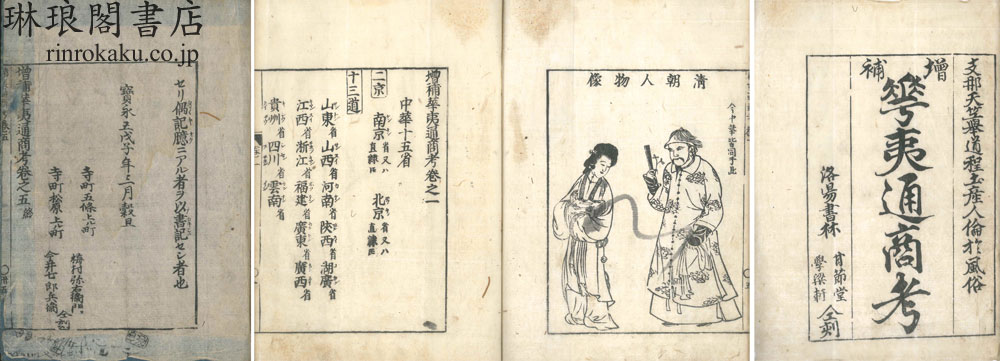 琳琅閣書店
rinrokaku.co.jp
増補華夷通商考巻之五
セリ偶記臆ニアル者ヲ以書記セシ者也
寳永五戊子年三月穀旦
寺町五條上ル町
寺町松原上ル町
梅村弥右衛門
今井七郎兵衛
仝刻
増補華夷通商考巻之一
中華十五省
二京
南京省又ハ直隷
北京省又ハ直隷
十三道
山東省 山西省 河南省 陝西省 湖廣省
江西省 浙江省 福建省 廣東省 廣西省
貴州省 四川省 雲南省
清朝人物像
支那天竺舉道程土産人倫於風俗
増補
華夷通商考
洛昜書林
甘節堂
學梁軒
仝刻